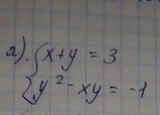 а). { x + y = 3
{ y² - xy = -1